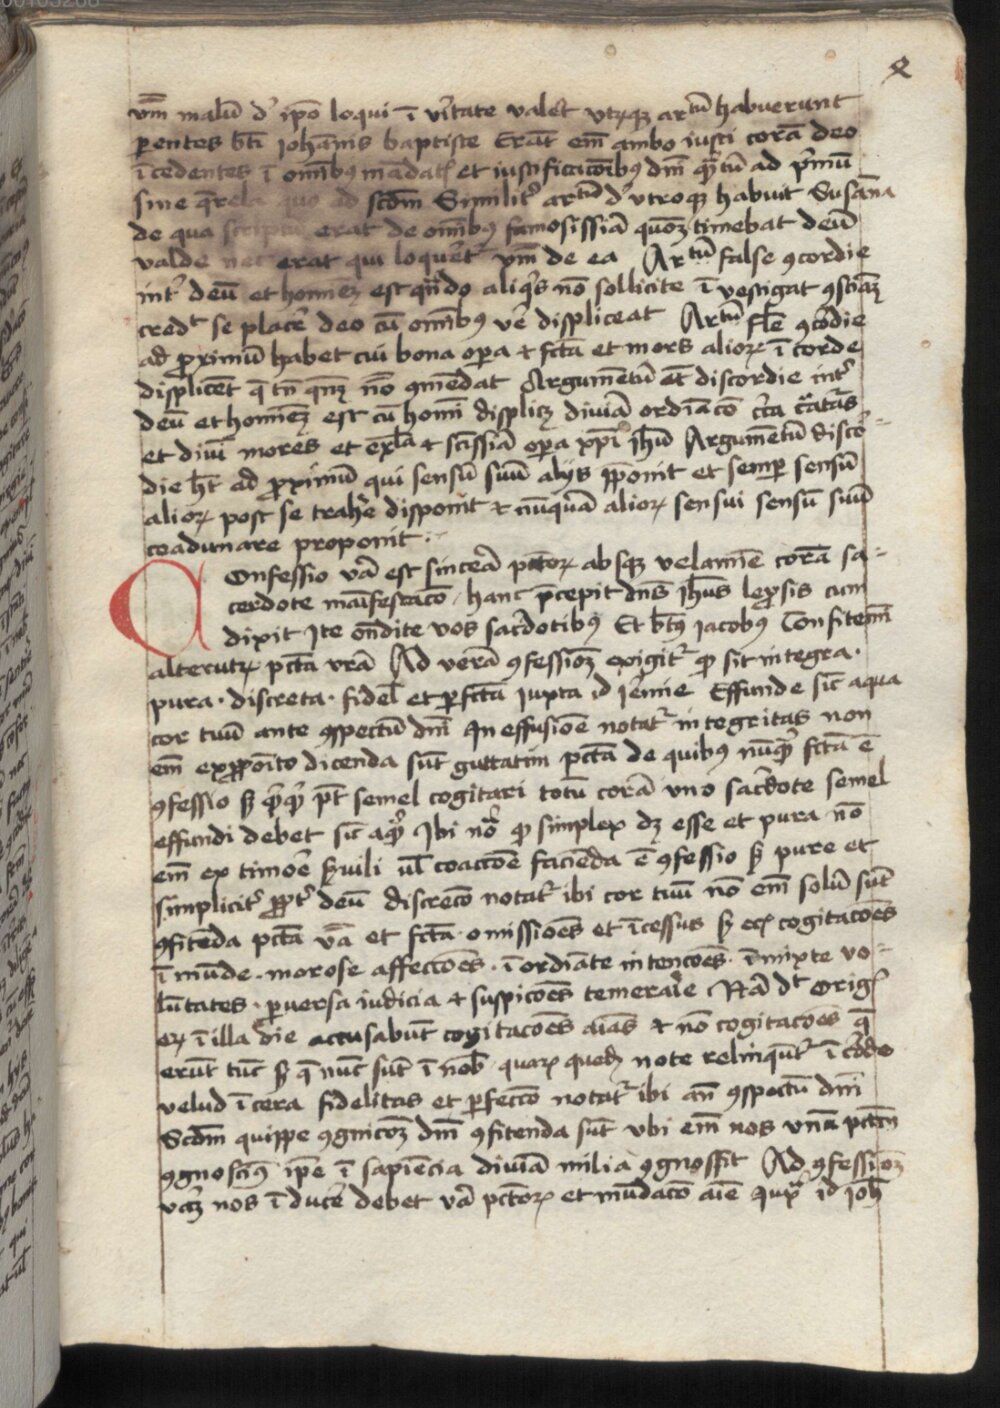 vm̄ malū d' ip̄o loqui ī v'itate valet vtrq₃ artū habuerunt
ꝑentes bt̄i ioh̄anis baptiste Erāt em̄ ambo iusti corā deo
īcedentes ī om̄ib9 mādat' et iustificac̄oīb9 dn̄i q̄ntū ad p'mū
sine q̄rela quo ad scd̄m Similit' artū d' vtroq₃ habuit Susāna
de qua erat de om̄ib9 famosissīa quō₃ timebat deū
valde nec erat qui loqueret' vm̄ de ea Artū false ɔcordie
int' deū et homīe₃ est qn̄do aliq's nō sollicite īvestigat
cred't se placēe deo cū om̄ib9 v'e displiceat Artū fl̄e ɔcordie
ad ꝓximū habet cui bona oꝑa ⁊ fctā et mors alioꝝ ī corde
displicēt q̄ tn̄ nō ɔmēdat Argumētū et discordie int'
deū et homīe₃ est cū homī displic₃ diuīa ordīac̄o
et diuī mores et exl̄a ⁊ sctissīa oꝑa xp̄i ih̄u Argumētū disco-
die h̄t ad ꝓximū qui sensū suū alijs p̄ponit et semꝑ sensū
alioꝝ post se trahe'e disponit ⁊ nūquā alioꝝ sensui sensū suū
coadunare proponit.
Confessio v'a est sincēa pctōꝝ absq₃ velamīe corā sa-
cerdote maīfestac̄o. hanc p̄cepit dn̄s ih̄us leprosis cum
dixit Ite on̄dite vos sac'dotib9 Et bt̄9 iacobus Confitemī
alterutrꝝ pctā vr̄a Ad verā ɔfessioēm exigit' ꝙ sit integra.
pura. discreta. fidel' et ꝑfctā iuxta id ie'mie Effunde sic̄ aqua
cor tuū ante ɔspectū dn̄i In effusiōe notat' integritas non
em̄ dicenda sūt guttatim pctā de quib9 nūq̄ fctā ē
ɔfessio s₃ semel cogitari totū corā vno sac'dote semel
effundi debet sic̄ aq̄ Ibi ꝙ simplex d₃ esse et pura nō
em̄ ex timōe s'uili ul̄ coacc̄oe faciēda ē ɔfessio s₃ pure et
simplicit' ꝓpt' deū discrec̄o notat' ibi cor tuū nō em̄ solū sūt
ɔfitēda pctā v'a et fctā omissiōes et īcessus s₃ cogitac̄oes
īmūde. morose affecc̄oes. īordīate intenc̄oes. vo-
lūtates. ꝑuersa iudicia ⁊ suspic̄oes temera'ie Nā d't Orig'
ī illa die accusabūt cogitac̄oes aīas ⁊ nō cogitac̄oes q̄
erūt tūc s₃ q̄ nūc sūt ī nob' quaꝝ note relinquūt' ī corde
velud ī cera fidelitas et ꝑfecc̄o notat' ibi an̄ ɔspectū dn̄i
Scd̄m quippe ɔgnic̄oē₃ dn̄i ɔfitenda sūt vbi em̄ nos vnā pctm̄
ɔgnosci9 ip̄e ī sapiēcia diuīa milia ɔgnossit Ad ɔfessioē₃
nos īducēe debet v'a pctōꝝ et mūdac̄o aīe id ioh̄